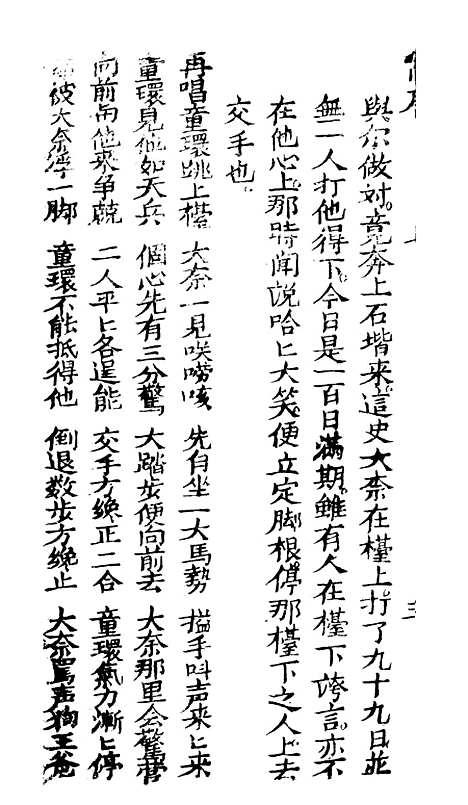 與尔做対。竟奔上石堦来。這史大柰在檯上。打了九十九日。並
無一人打他得下。今日是一百日滿期。雖有人在檯下誇言。亦不
在他心上。那時闻說哈匕大笑。便立定脚根。停那檯下之人上去
交手也。
再唱童環跳上檯 大奈一見咲唠咳 先自坐一大馬勢 搤手呌声来匕来
童環見他如天兵 個心先有三分驚 大踏步便向前去 大奈那里会驚
向前与他来争競 二人平匕各逞能 交手方纔正二合 童環氣力漸匕停
被大奈一脚 童環不能抵得他 倒退数步方纔止 大奈罵声狗王爸